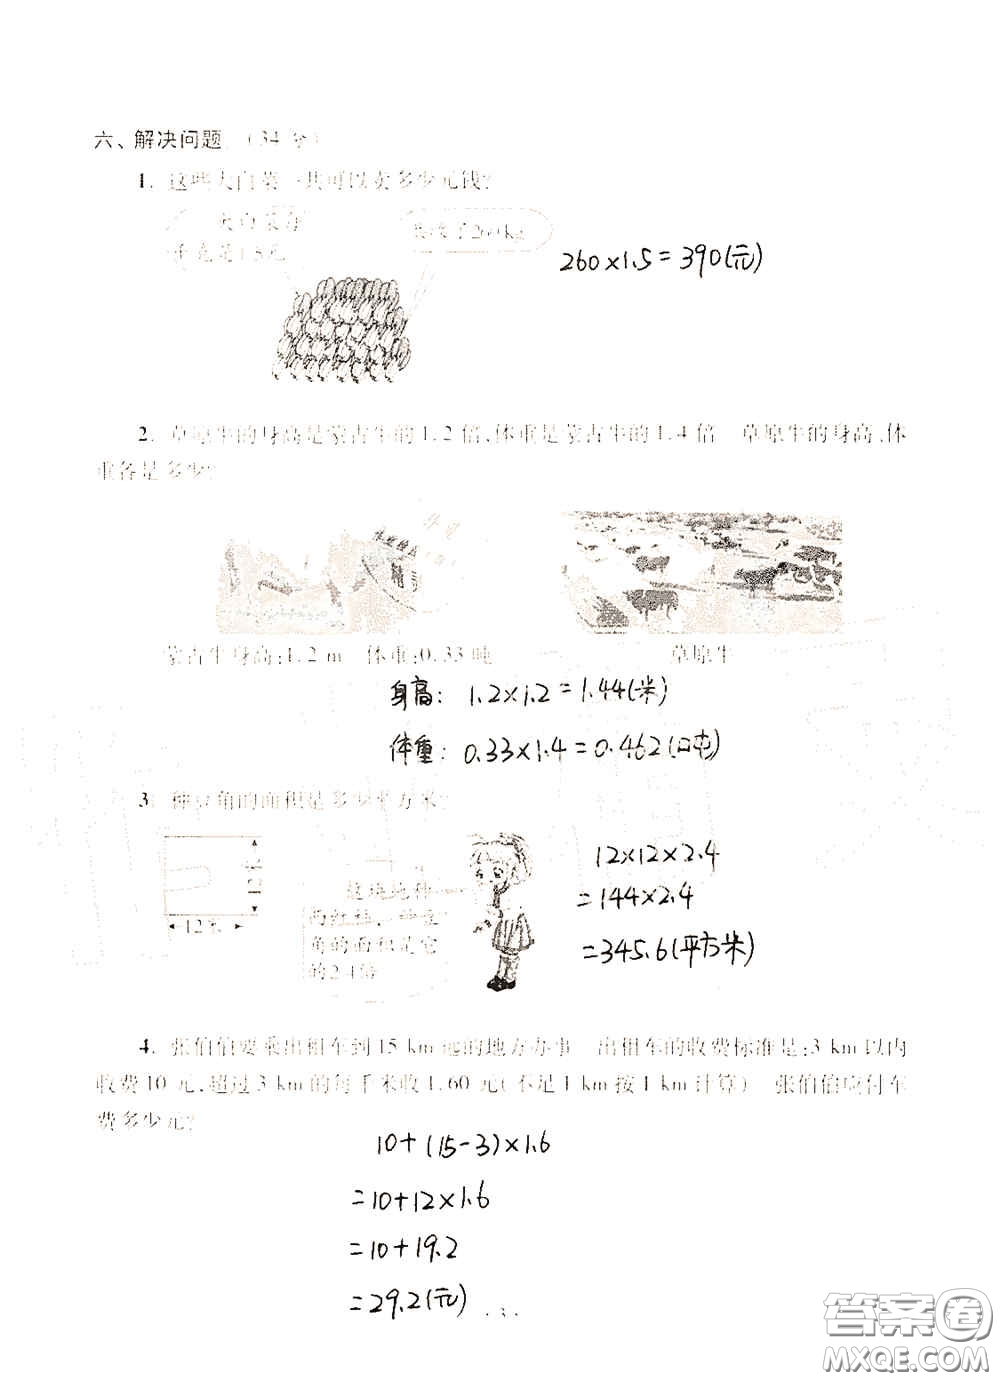 六、解决问题.(34分)
1. 这些大白菜一共可以卖多少元钱?
大白菜每
千克是1.5元
共收了260kg
260×1.5=390(元)
2. 草原牛的身高是蒙古牛的1.2倍,体重是蒙古牛的1.4倍 草原牛的身高、体
重各是多少?
蒙古牛身高:1.2 m 体重:0.33吨
草原牛
身高: 1.2×1.2=1.44(米)
体重: 0.33×1.4=0.462(吨)
3. 种豆角的面积是多少平方米?
12米
12米
这块地种
西红柿,种豆
角的面积是它
的2.4倍
12×12×2.4
=144×2.4
=345.6(平方米)
4. 张伯伯要乘出租车到15 km远的地方办事 出租车的收费标准是:3 km以内
收费10元,超过3 km的每千米收1.60元(不足1 km按1 km计算) 张伯伯应付车
费多少元?
10+(15-3)×1.6
=10+12×1.6
=10+19.2
=29.2(元)
· 3 ·
答案圈
MXQE.COM